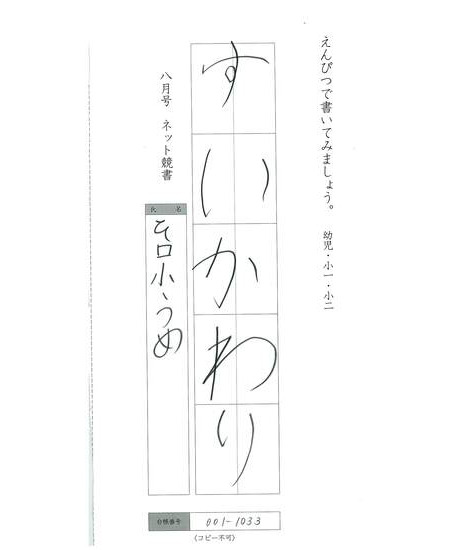 えんぴつで書いてみましょう。 幼児・小一・小二
すいかわり
八月号 ネット競書
氏 名
台帳番号
001-1033
(コピー不可)